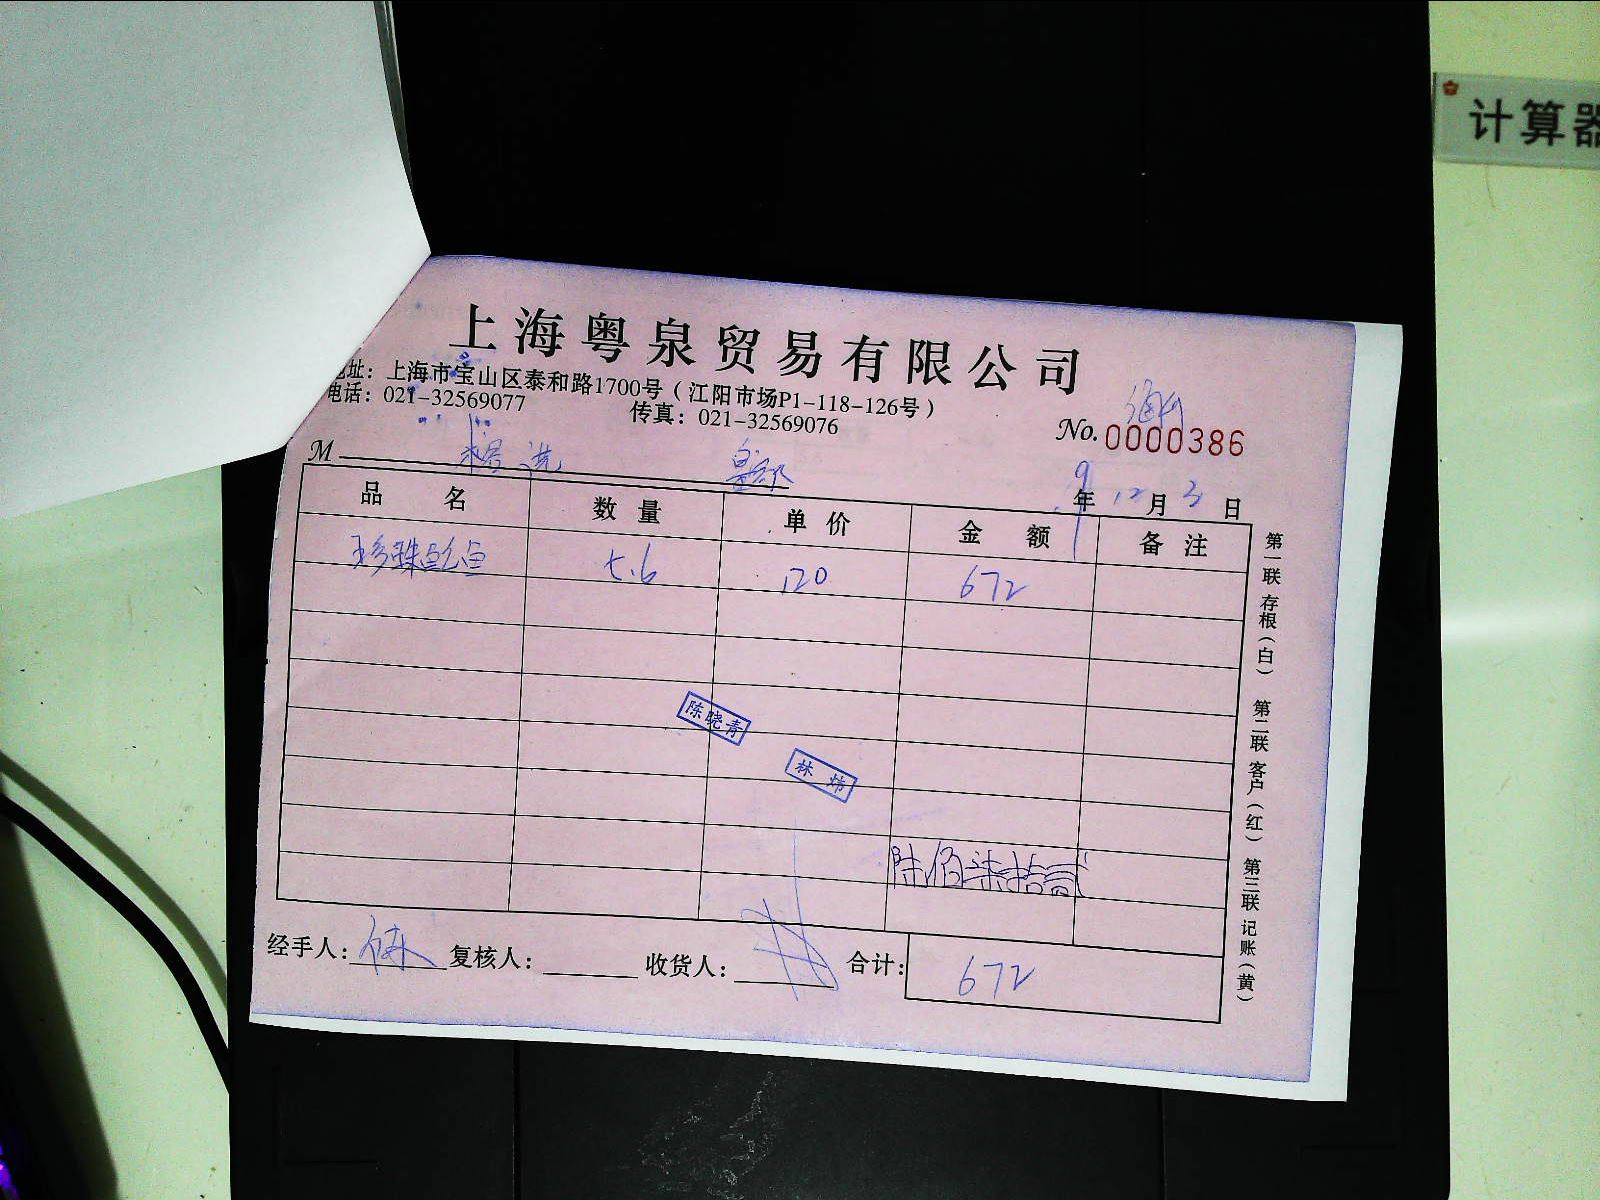 计算器
上海粤泉贸易有限公司
地址：上海市宝山区泰和路1700号（江阳市场P1-118-126号）
电话：021-32569077 传真：021-32569076
No.0000386
M
9年12月3日
品名 数量 单价 金额 备注
珍珠鱼 5.6 120 672
陈晓青
林炜
陆佰柒拾贰
经手人： 复核人： 收货人： 合计： 672
第一联 存根（白） 第二联 客户（红） 第三联 记账（黄）